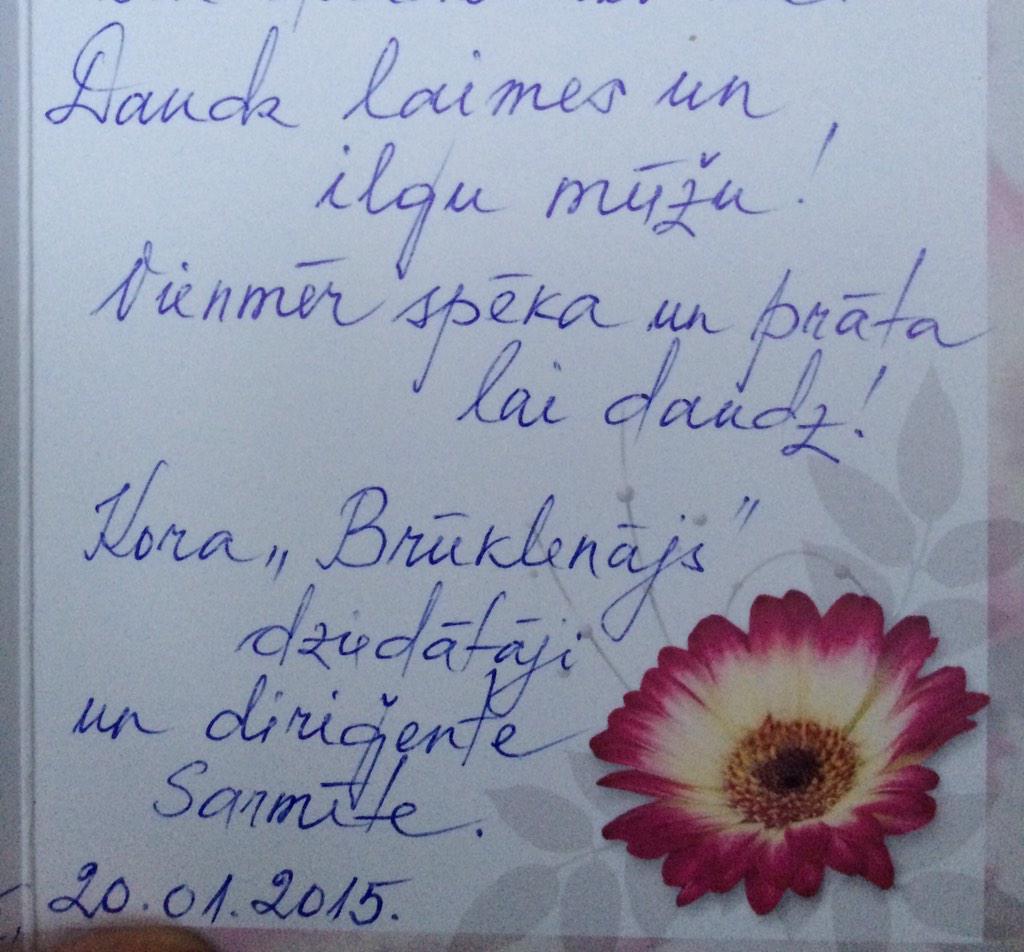 Daudz laimes un
ilgu mūžu!
Vienmēr spēka un prāta
lai daudz!
Kora „Brūklenājs"
dziedātāji
un diriģente
Sarmīte.
20.01.2015.